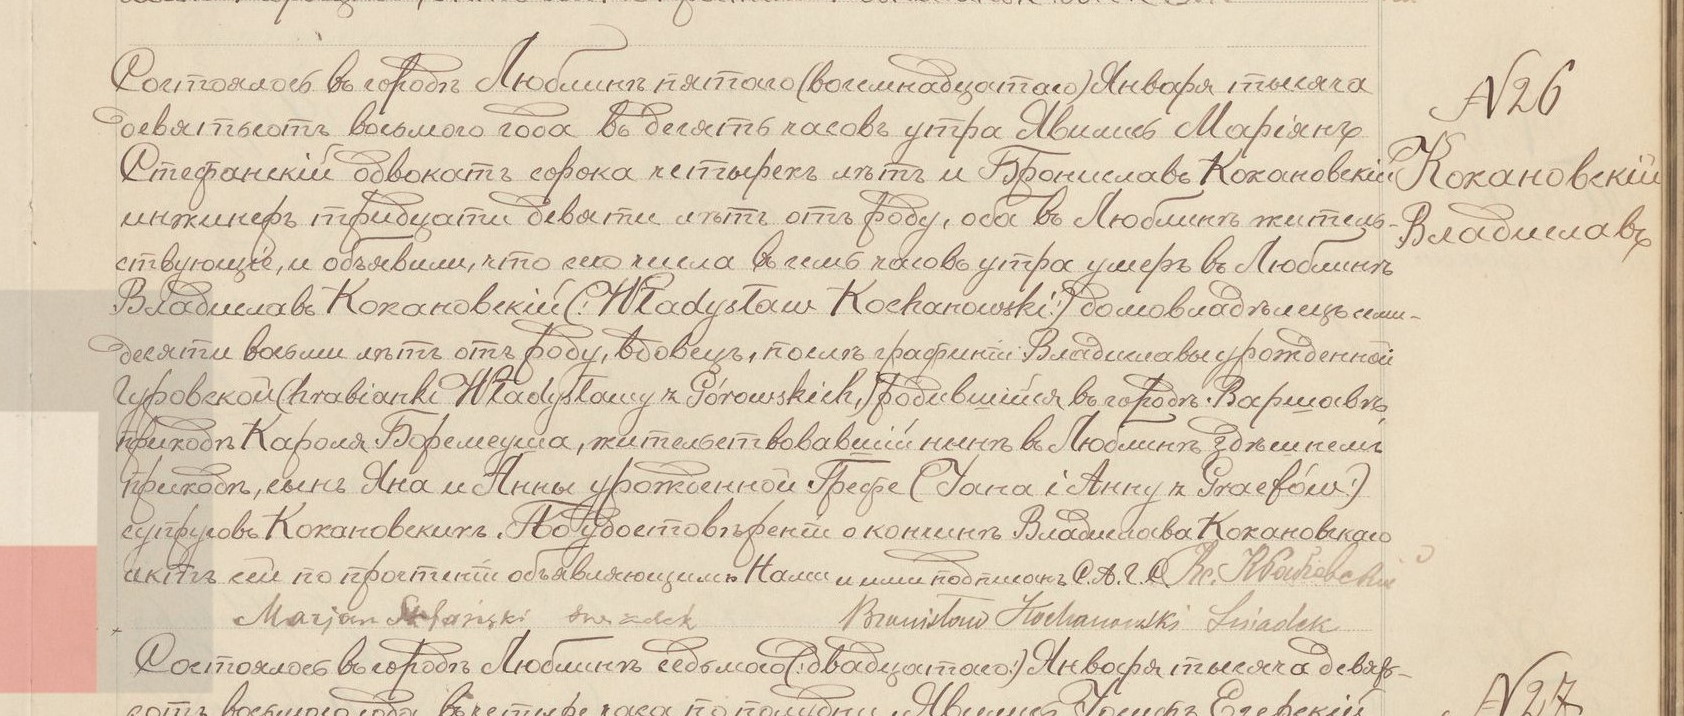 Состоялось въ городѣ Люблинѣ пятаго (восемнадцатаго) Января тысяча
девятьсотъ восьмого года въ десять часовъ утра Явились Маріянъ
Стефанскій адвокатъ сорока четырехъ лѣтъ и Брониславъ Кохановскій
инжинеръ тридцати девяти лѣтъ отъ роду, оба въ Люблинѣ житель-
ствующіе, и объявили, что сего числа въ семь часовъ утра умеръ въ Люблинѣ
Владиславъ Кохановскій (: Władysław Kochanowski :) домовладѣлецъ семи-
десяти восьми лѣтъ отъ роду, вдовецъ, послѣ графини Владиславы урожденной
Гуровской (hrabianki Władysławy z Górowskich,) родившійся въ городѣ Варшавѣ
приходѣ Кароля Боромеуша, жительствовавшій нынѣ въ Люблинѣ здѣшнемъ
приходѣ, сынъ Яна и Анны урожденной Грефе (Jana i Anny z Graefów :)
супруговъ Кохановскихъ. По удостовѣреніи о кончинѣ Владислава Кохановскаго
актъ сей по прочтеніи объявляющимъ Нами и ими подписанъ С.А.Г.С. Кс.
Marjan świadek Bronisław Kochanowski Świadek
Состоялось въ городѣ Люблинѣ седьмого (: двадцатаго :) Января тысяча девять-
сотъ восьмого года въ четыре часа по полудни, Явились
N26
Кохановскій
Владиславъ
N27